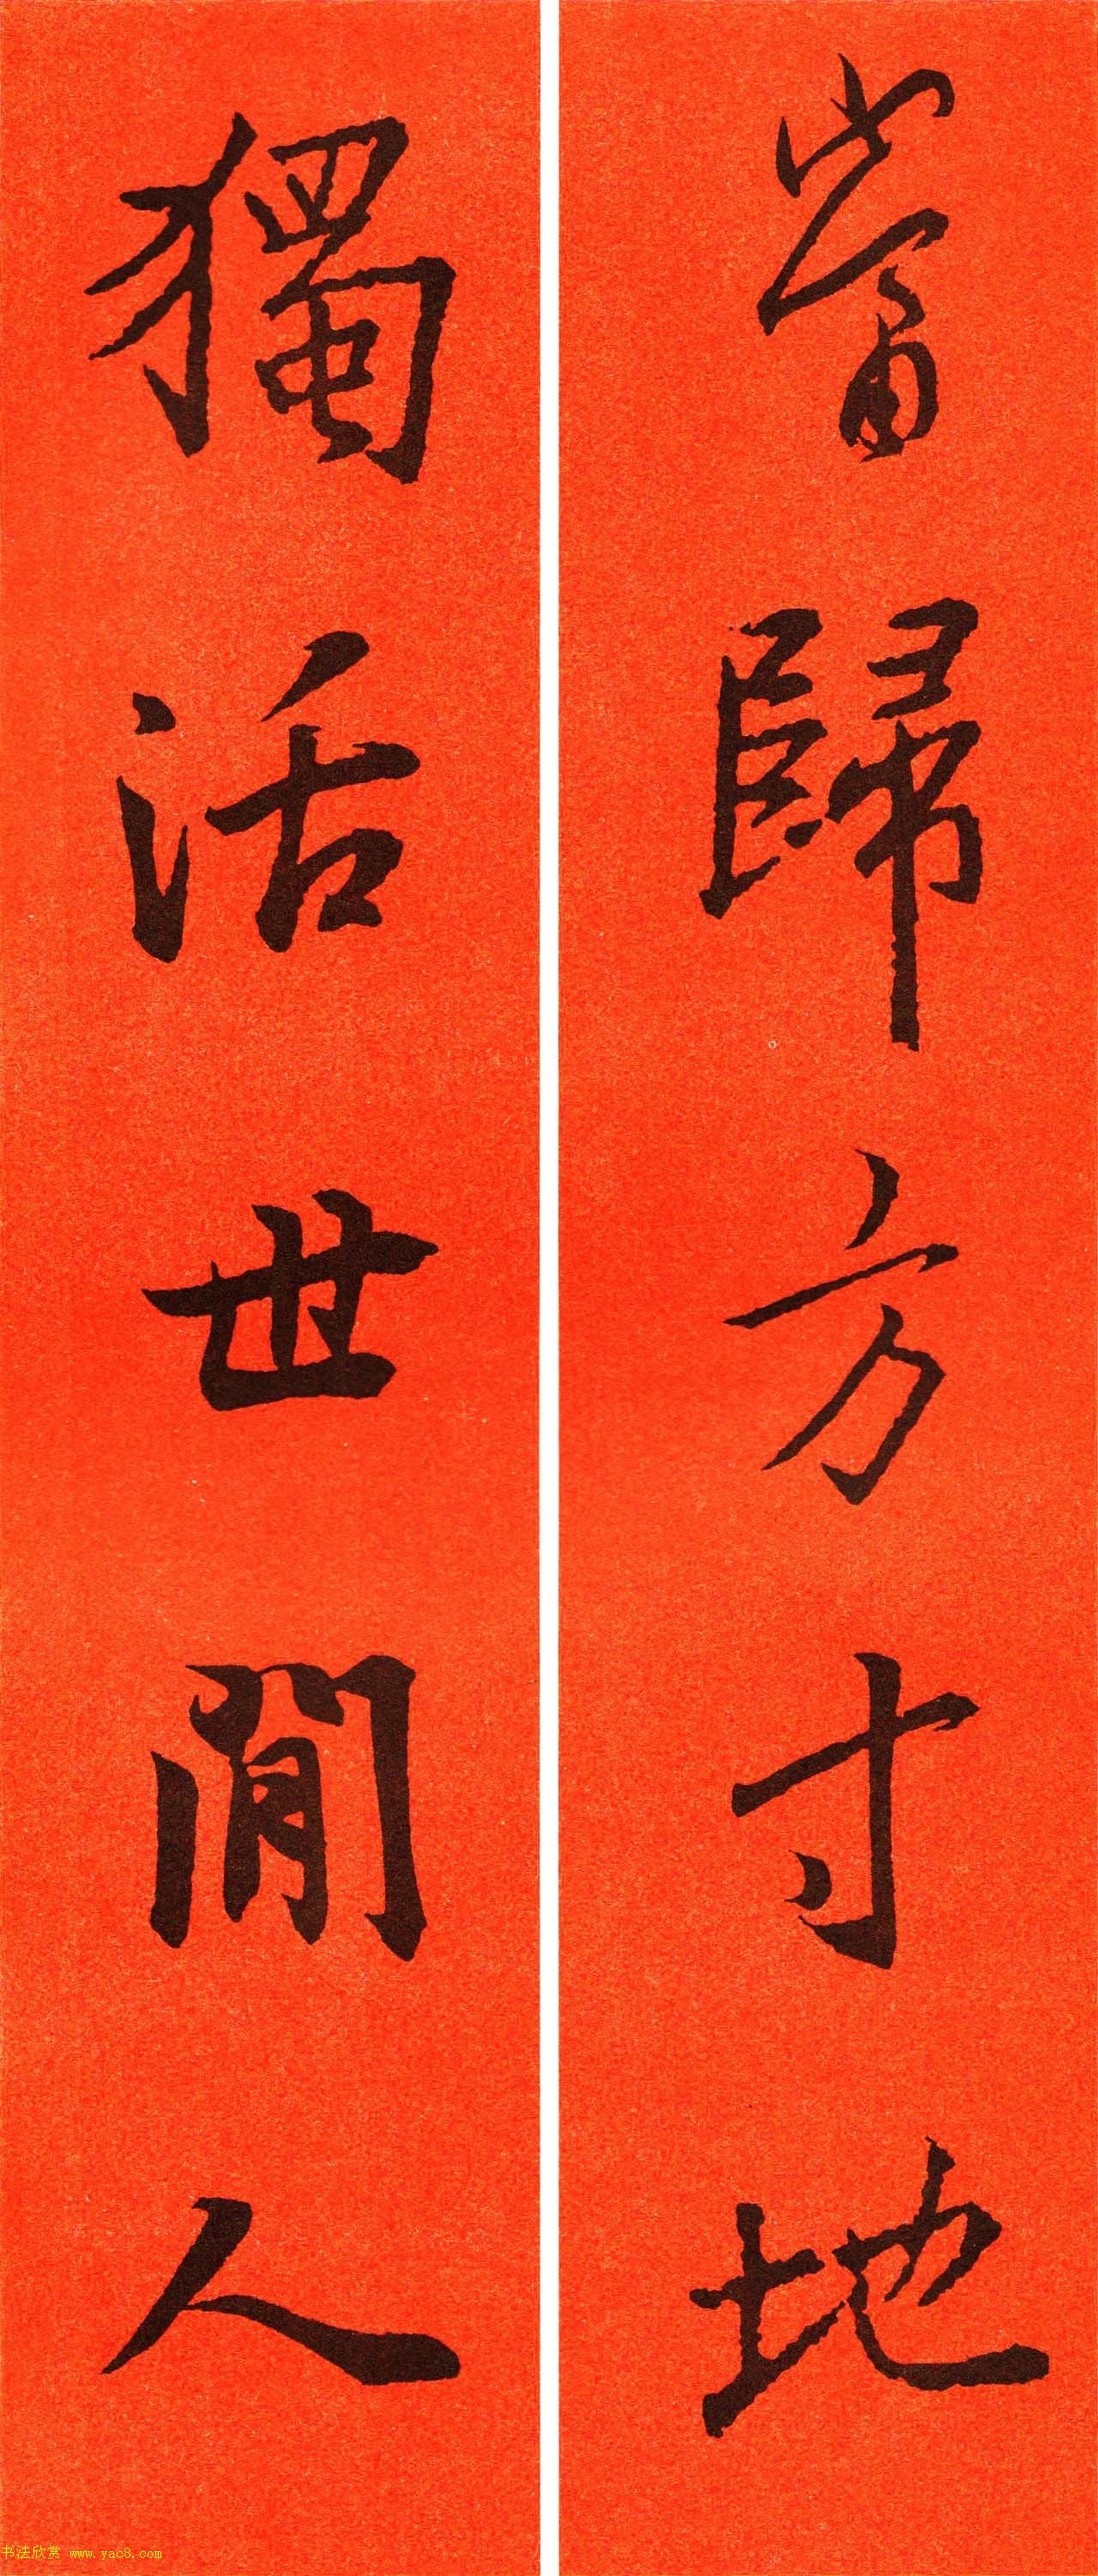 當歸方寸地
獨活世間人
书法欣赏 www.yac8.com